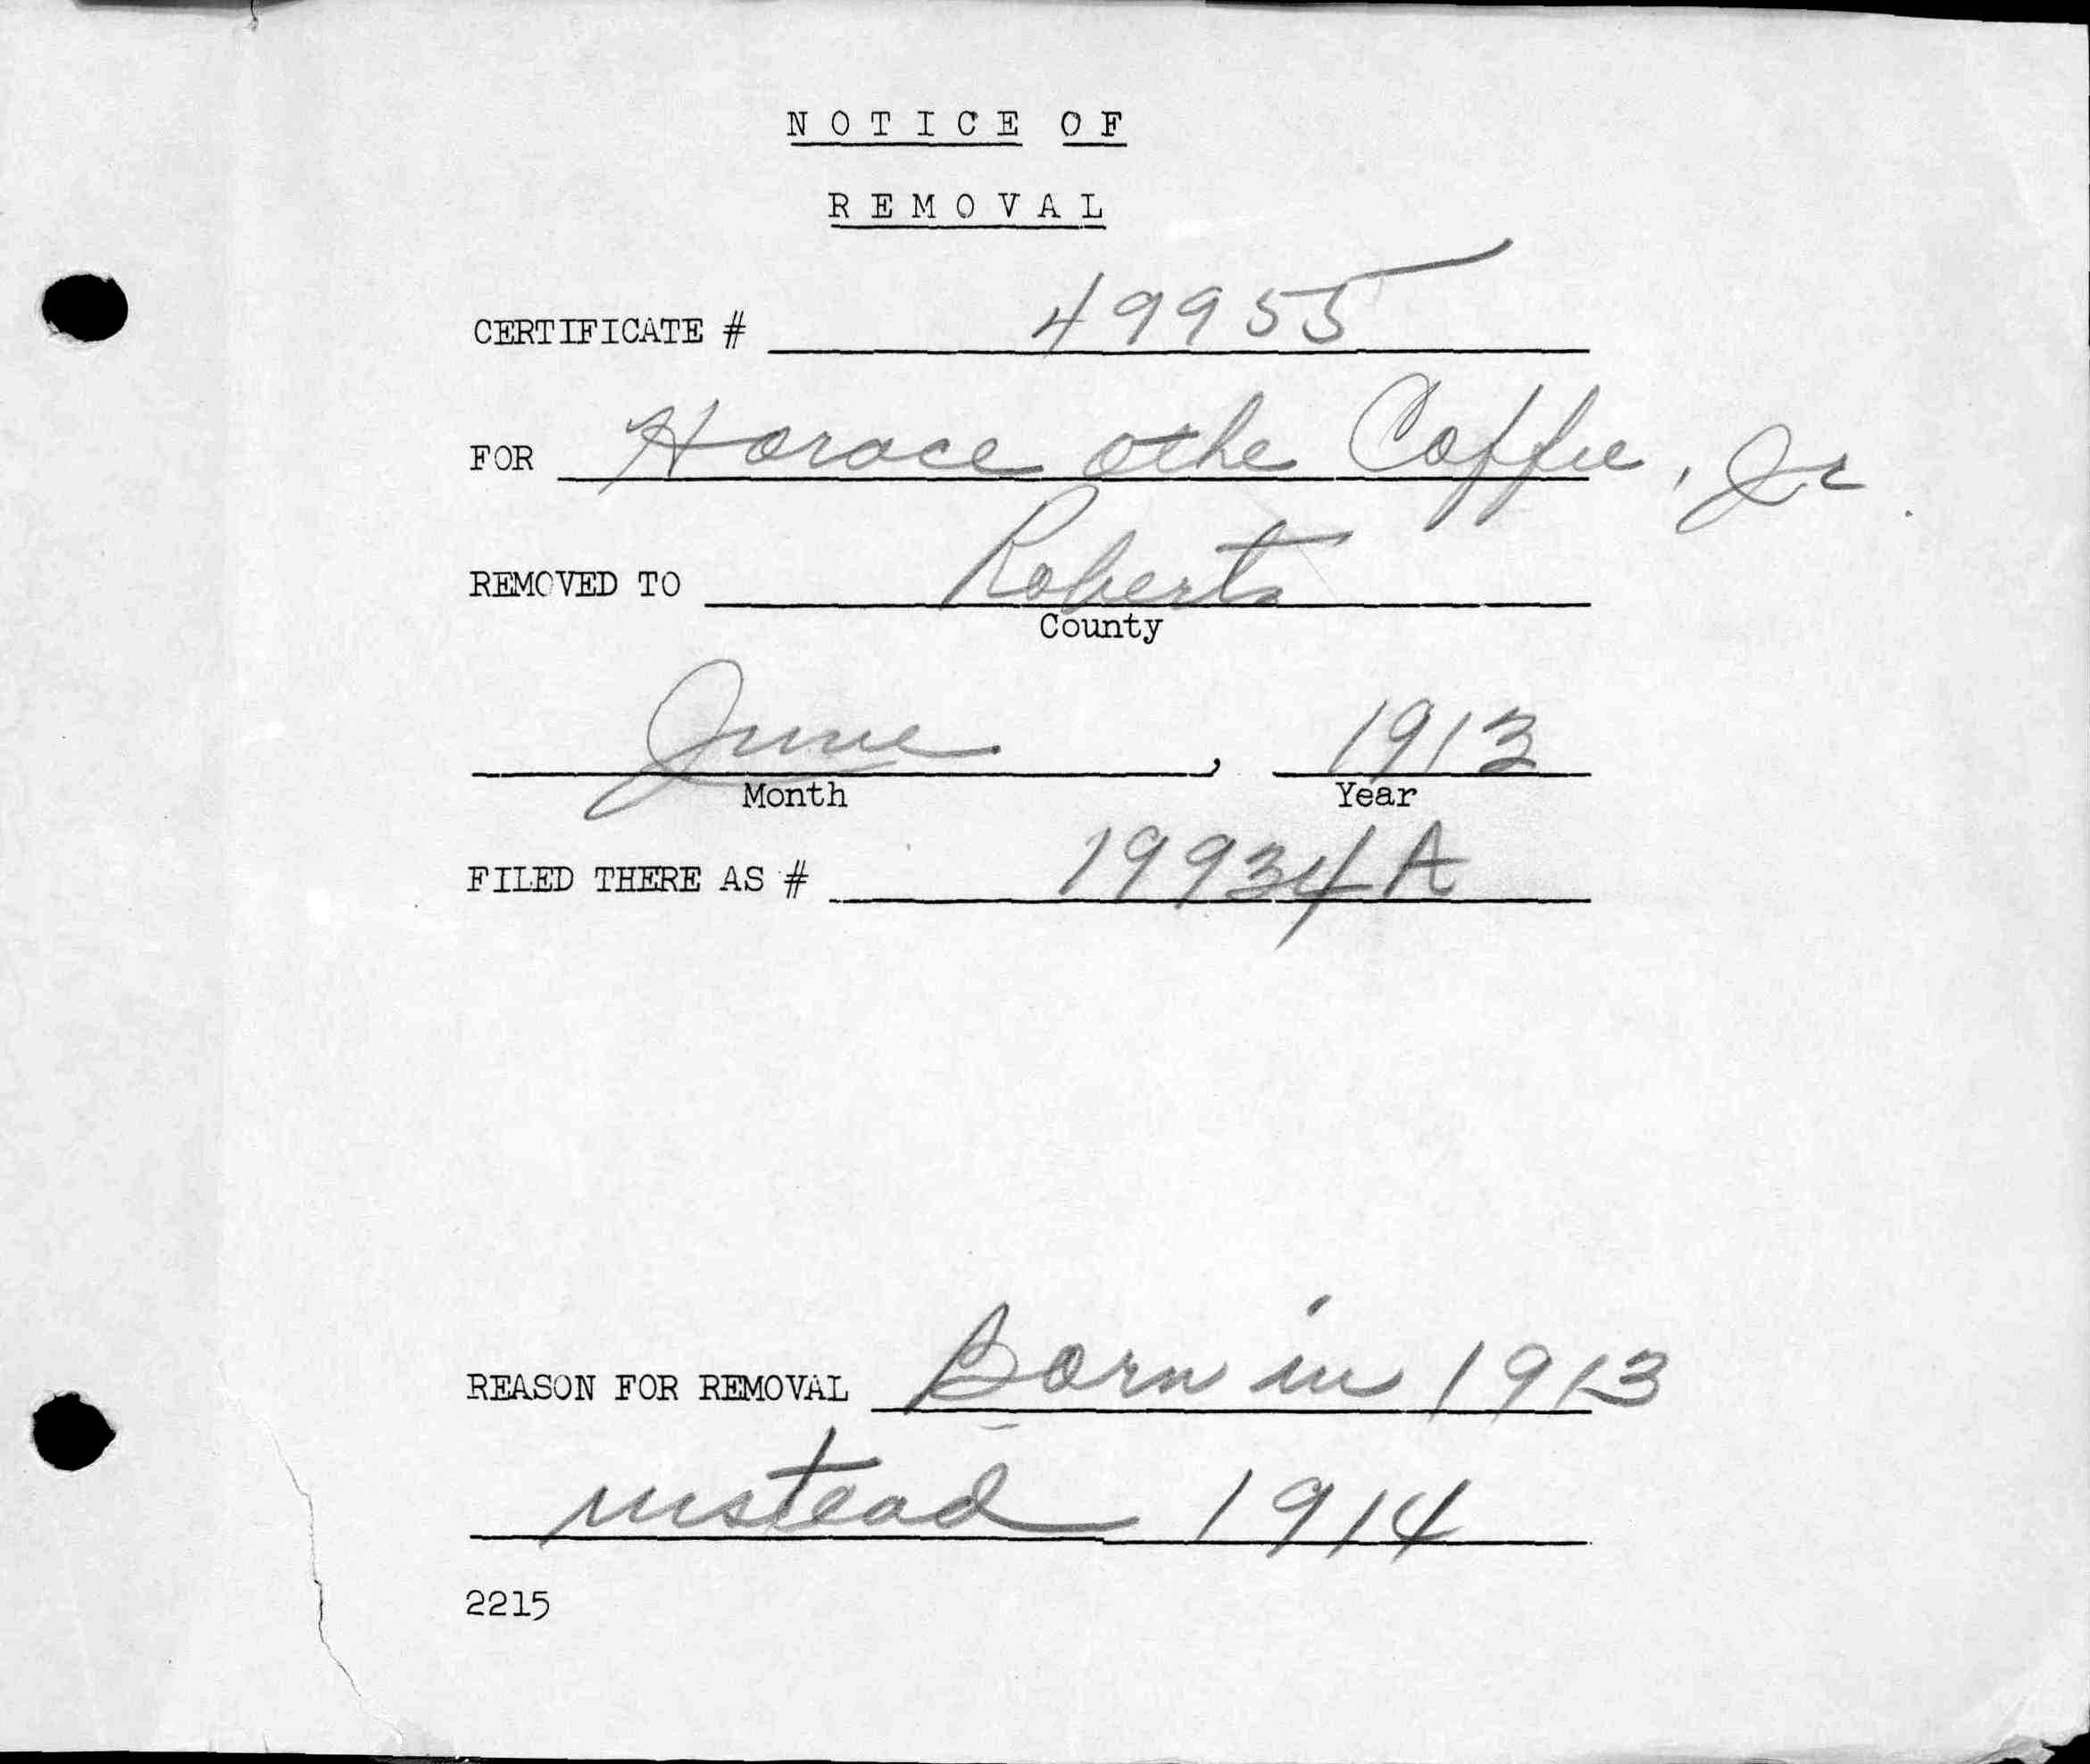 NOTICE OF
REMOVAL
CERTIFICATE # 49955
FOR Horace othe Coffee, Jr.
REMOVED TO Roberts
County
June , 1913
Month Year
FILED THERE AS # 19934A
REASON FOR REMOVAL Born in 1913
instead 1914
2215